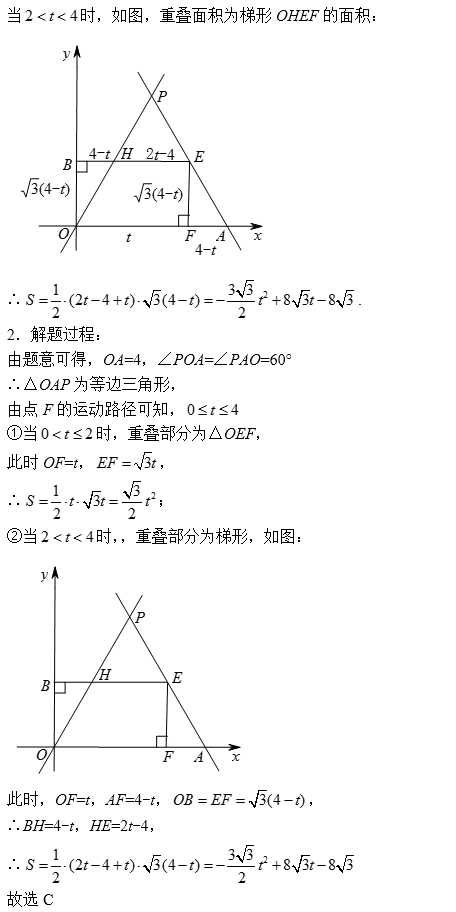 当2<t<4时，如图，重叠面积为梯形OHEF的面积：
y
P
B 4-t H 2t-4 E
√3(4-t) √3(4-t)
O t F A x
4-t
∴ S=1/2·(2t-4+t)·√3(4-t)=-3√3/2 t²+8√3t-8√3.
2．解题过程：
由题意可得，OA=4，∠POA=∠PAO=60°
∴△OAP为等边三角形，
由点F的运动路径可知，0≤t≤4
①当0<t≤2时，重叠部分为△OEF，
此时OF=t，EF=√3t，
∴ S=1/2·t·√3t=√3/2 t²；
②当2<t<4时，，重叠部分为梯形，如图：
y
P
B H E
O F A x
此时，OF=t，AF=4-t，OB=EF=√3(4-t)，
∴BH=4-t，HE=2t-4，
∴ S=1/2·(2t-4+t)·√3(4-t)=-3√3/2 t²+8√3t-8√3
故选C